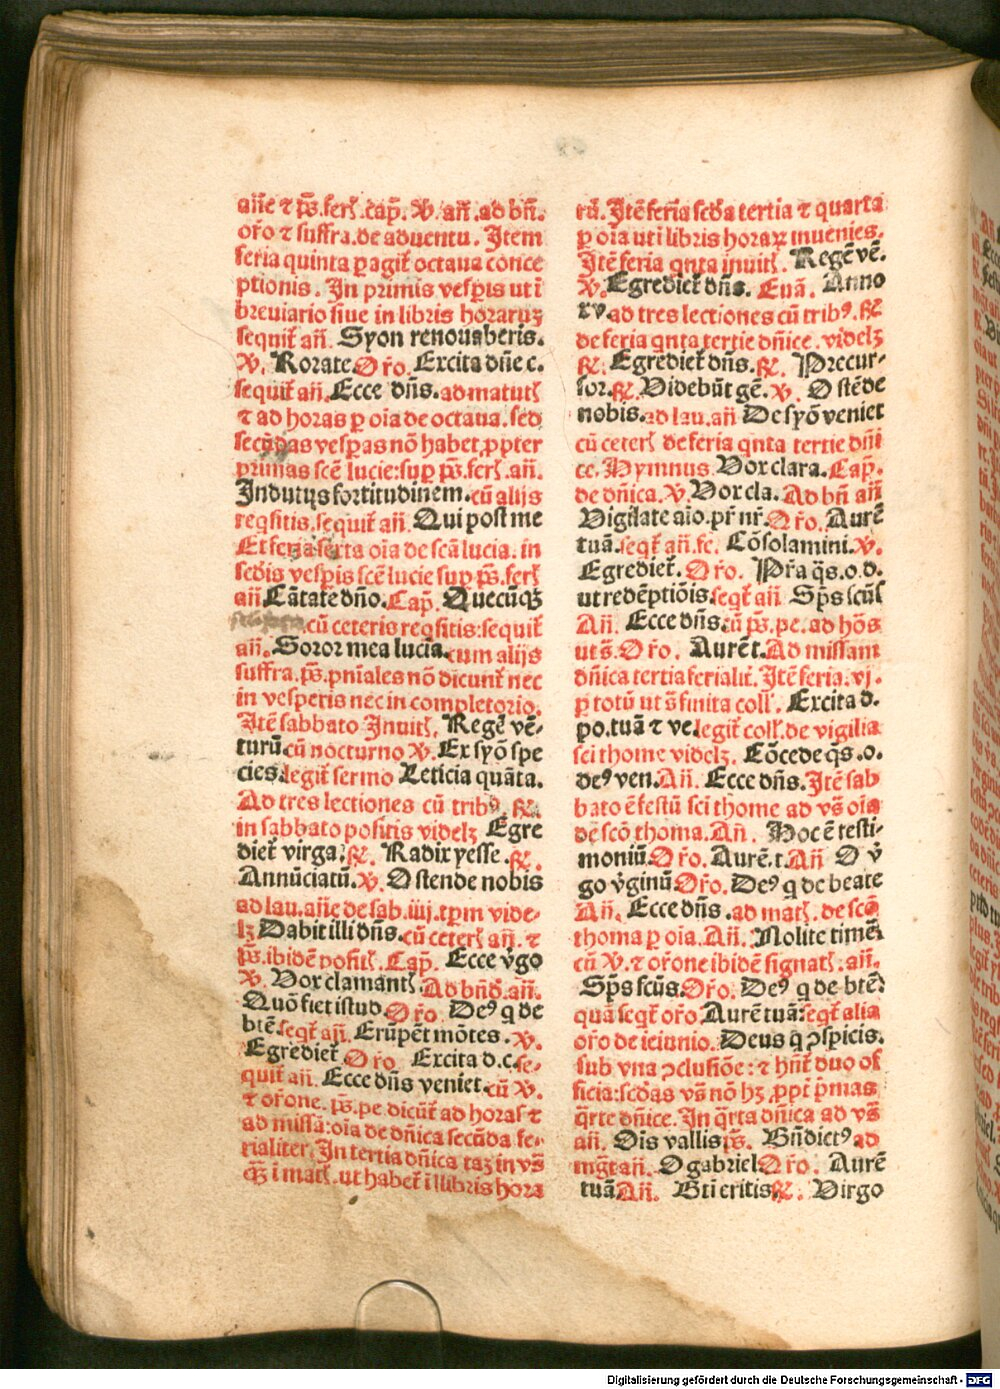 añe ⁊ p̃s. ferꝭ. cap̃. ℣. añ. ad bñ.
oro ⁊ suffra. de aduentu. Item
feria quinta ꝑ agit̃ octaua conce
ptionis. In primis vesꝑis ut i
breuiario siue in libris horaruꝫ
sequit̃ añ. Syon renouaberis.
℣. Rorate. Oro. Excita dñe c.
sequit̃ añ. Ecce dñs. ad matutꝭ
⁊ ad horas ꝑ oia de octaua. sed
secũdas vesꝑas nõ habet ꝓpter
primas scẽ lucie: suꝑ p̃s. ferꝭ. añ.
Indutꝰ fortitudinem. cũ alijs
reqsitis. sequit̃ añ. Qui post me
Et feria sexta oia de scã lucia. in
scd̃is vesꝑis scẽ lucie suꝑ p̃s. ferꝭ
añ Cãtate dño. Cap̃. Quecũqꝫ
cũ ceteris reqsitis: sequit̃
añ. Soror mea lucia. cum alijs
suffra. p̃s. pniales nõ dicunt̃ nec
in vesperis nec in completorio.
Itẽ sabbato Inuitꝭ. Regẽ vẽ-
turũ cũ nocturno ℣. Ex syõ spe
cies. legit̃ sermo Leticia quãta.
Ad tres lectiones cũ tribꝰ. ℟.
in sabbato positis videlꝫ Egre
diet̃ virga. ℟. Radix yesse. ℟.
Annũciatũ. ℣. Ostende nobis
ad lau. añe de sab. iiij. tꝑm vide-
lꝫ Dabit illi dñs. cũ ceterꝭ añ. ⁊
p̃s. ibidẽ positꝭ. Cap̃. Ecce v̓go
℣. Vox clamantꝭ. Ad bñd. añ.
Quõ fiet istud. Oro. Deꝰ q de
btẽ. seqt̃ añ. Erũpẽt mõtes. ℣.
Egrediet̃. Oro. Excita d. c. se-
quit̃ añ. Ecce dñs veniet. cũ ℣.
⁊ orõne. p̃s. pe. dicũt̃ ad horas ⁊
ad missã: oia de dñica secũda fe-
rialiter. In tertia dñica taꝫ in vs̃
qꝫ i matꝭ. ut habet̃ i libris hora
rũ. Itẽ feria scd̃a tertia ⁊ quarta
ꝑ oia uti libris horaꝝ inuenies.
Itẽ feria qnta inuitꝭ. Regẽ vẽ.
℣. Egrediet̃ dñs. Euã. Anno
xv. ad tres lectiones cũ tribꝰ. ℟
de feria qnta tertie dñice. videlꝫ
℟. Egrediet̃ dñs. ℟. Precur-
sor. ℟. Videbũt gẽ. ℣. Ostẽde
nobis. ad lau. añ De syõ veniet
cũ ceterꝭ de feria qnta tertie dñi
ce. Hymnus. Vox clara. Cap̃.
de dñica. ℣. Vox cla. Ad bñ añ
Vigilate aio. pr̃ nr̃. Oro. Aurẽ
tuã. seqt̃ añ. fe. Cõsolamini. ℣.
Egrediet̃. Oro. Pr̃a qs̃. o. d.
ut redẽptiõis. seqt̃ añ Sp̃s scũs
Añ. Ecce dñs. cũ p̃s. pe. ad hõs
ut s̃. Oro. Aurẽ t. Ad missam
dñica tertia ferialit̃. Itẽ feria. vj.
ꝑ totũ ut s̃ finita coll̃. Excita d.
po. tuã ⁊ ve. legit̃ coll̃. de vigilia
sci thome videlꝫ. Cõcede qs̃. o.
deꝰ ven. Añ. Ecce dñs. Itẽ sab
bato ẽ festũ sci thome ad vs̃ oia
de scõ thoma. Añ. Hoc ẽ testi-
moniũ. Oro. Aurẽ. t. Añ O v̓
go v̓ginũ Oro. Deꝰ q de beate
Añ. Ecce dñs. ad matꝭ. de scõ
thoma ꝑ oia. Añ. Nolite timeꝭ
cũ ℣. ⁊ orõne ibidẽ signatꝭ: añ.
Sp̃s scũs. Oro. Deꝰ q de btẽ
quã seqt̃ oro Aurẽ tuã: seqt̃ alia
oro de ieiunio. Deus q ꝯspicis.
sub vna ꝯclusiõe: ⁊ hñt̃ duo of
ficia: scd̃as vs̃ nõ hꝫ ꝓpt̃ p̃mas
qrte dñice. In qrta dñica ad vs̃
añ. Ois vallis p̃s. Bñdictꝰ ad
mg̃t añ. O gabriel Oro. Aurẽ
tuã Añ. Bti eritis ℟. Virgo
Digitalisierung gefördert durch die Deutsche Forschungsgemeinschaft - DFG